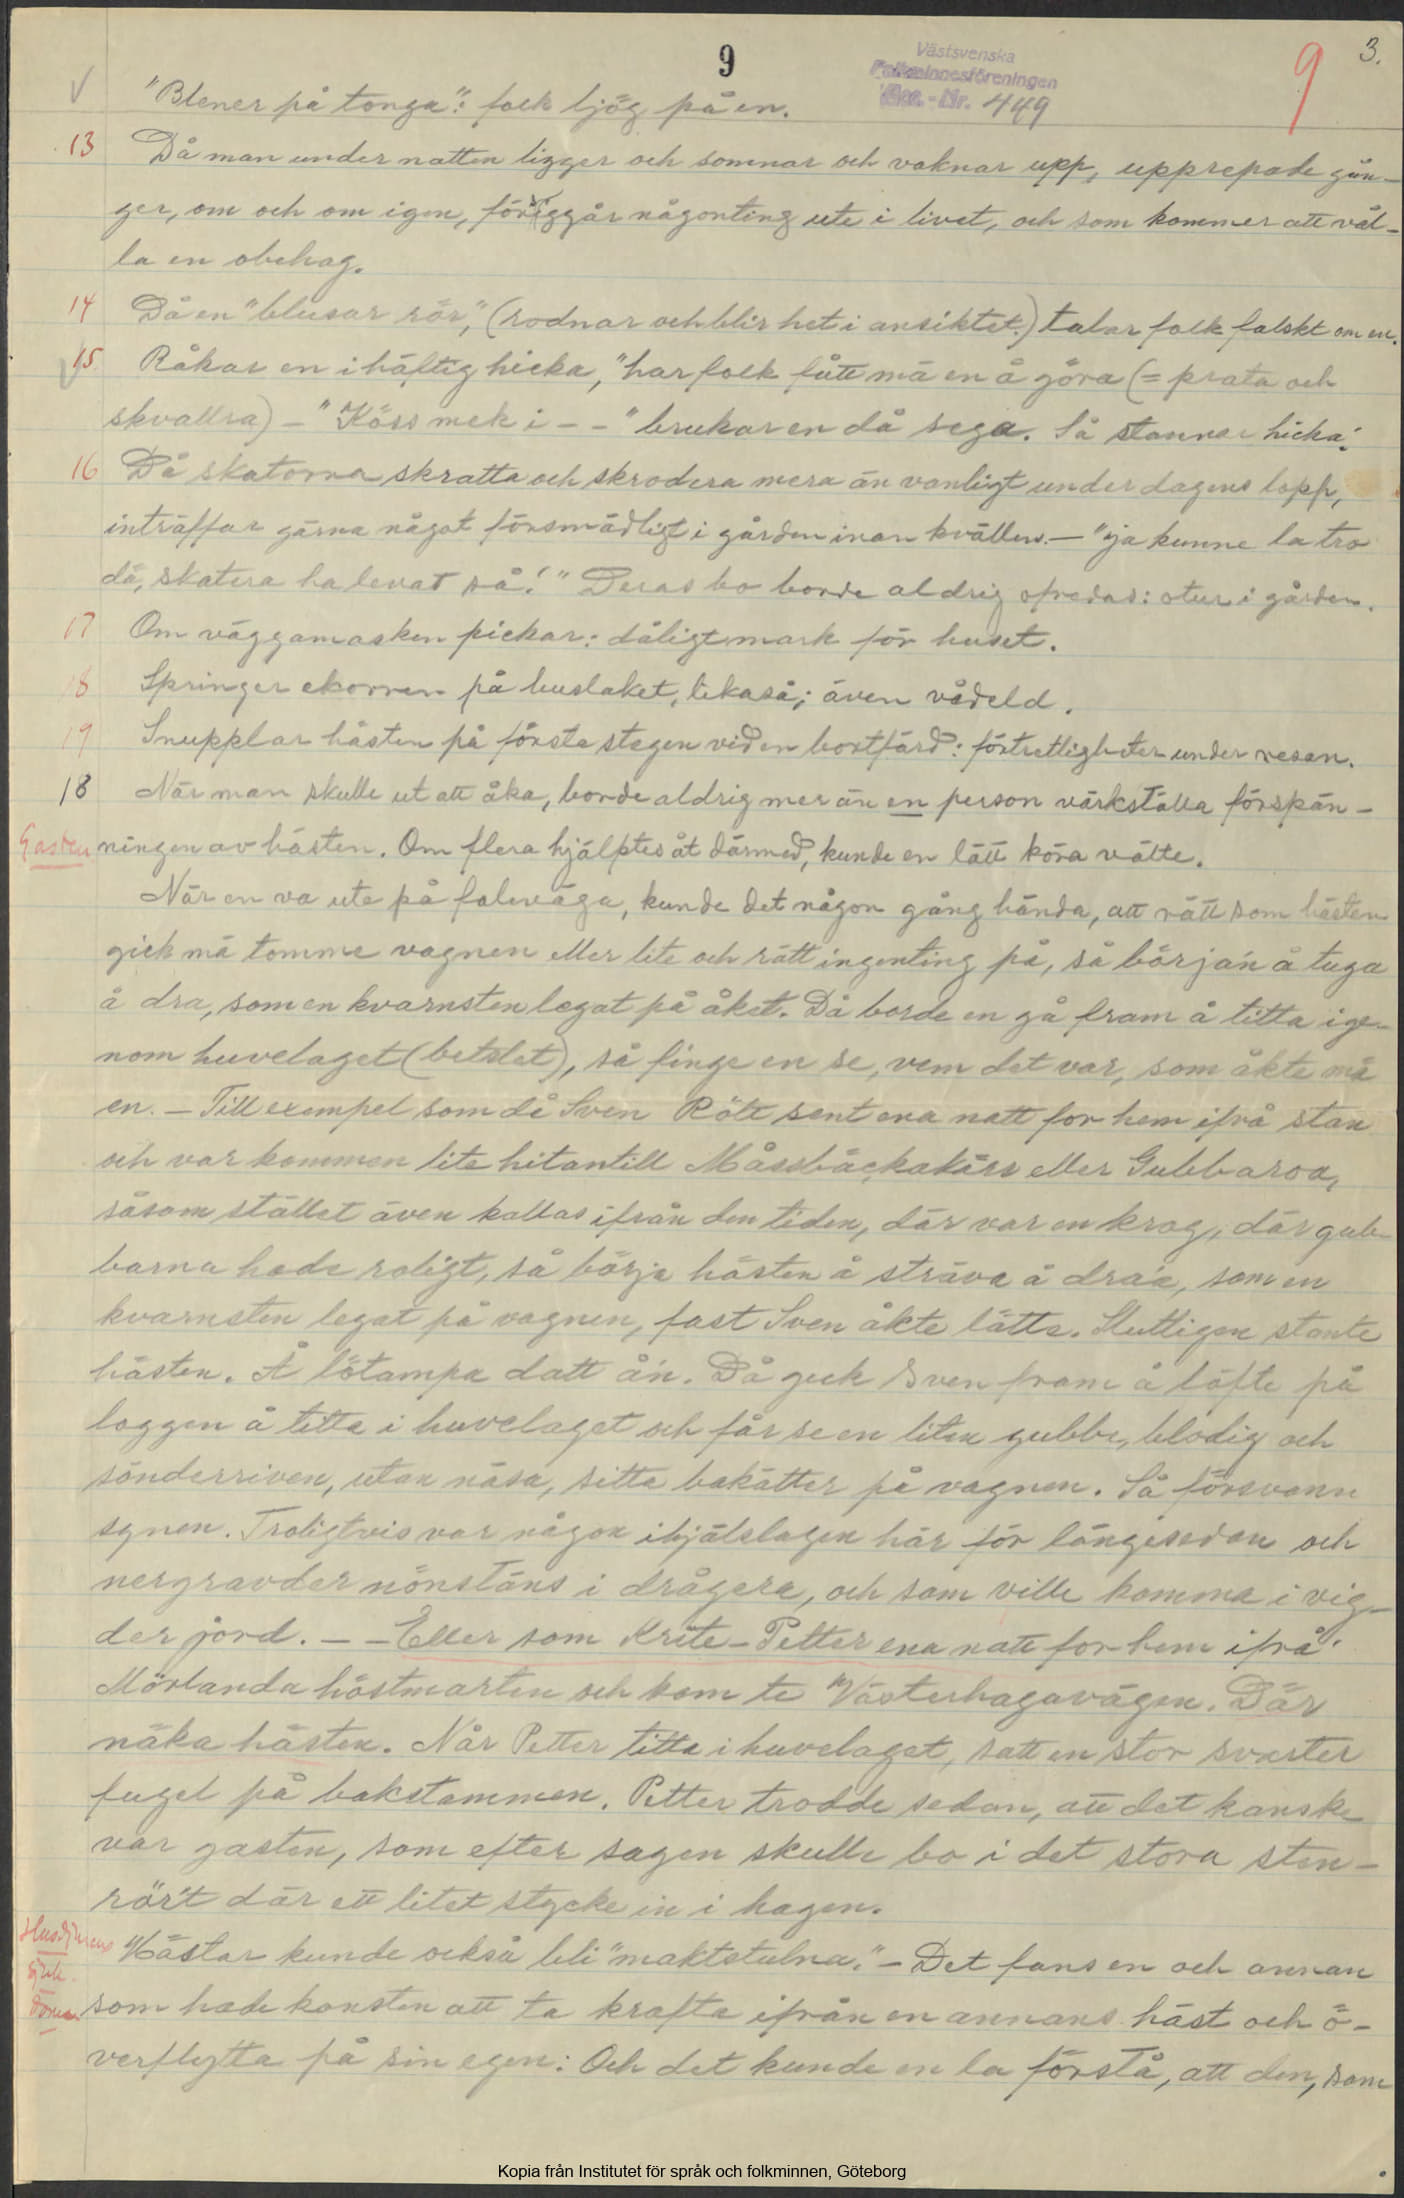 9
Västsvenska
Folkminnesföreningen
Acc.-Nr. 449
9
3.
"Blener på tonga": folk ljög på en.
13 Då man under natten ligger och somnar och vaknar upp, upprepade gån-
ger, om och om igen, föriggår någonting ute i livet, och som kommer att vål-
la en obehag.
14 Då en "blusar rör", (rodnar och blir het i ansiktet) talar folk falskt om en.
15 Råkar en i häftig hicka, "har folk fått mä en å göra (= prata och
skvallra) - "Köss mek i - - " brukar en då sega. Så stannar hicka.
16 Då skatorna skratta och skrodera mera än vanligt under dagens lopp,
inträffar gärna något försmädligt i gården inan kvällen. - "ja kunne la tro
dä, skatera ha levat så!" Deras bo borde aldrig ofredas: otur i gården.
17 Om väggamasken pickar: dåligt mark för huset.
18 Springer ekorren på hustaket, likaså; även vådeld.
19 Snupplar hästen på första stegen vid en bortfärd: förtretligheter under resan.
18 När man skulle ut att åka, borde aldrig mer än en person värkställa förspän-
Gasten
ningen av hästen. Om flera hjälptes åt därmed, kunde en lätt köra välte.
När en va ute på faleväga, kunde det någon gång hända, att rätt som hästen
gick mä tomme vagnen eller lite och rätt ingenting på, så börja'n å tuga
å dra, som en kvarnsten legat på åket. Då borde en gå fram å titta ige-
nom huvelaget (betslet), så finge en se, vem det var, som åkte mä
en. - Till exempel som då Sven Rölt sent ena natt for hem ifrå stan
och var kommen lite hitantill Måssbäckakärr eller Gubbaroa,
såsom stället även kallas ifrån den tiden, där var en krog, där gub-
barna hade roligt, så börja hästen å sträva å dra'a, som en
kvarnsten legat på vagnen, fast Sven åkte lätte. Sluttigen stante
hästen. Å lötampa datt å'n. Då geck Sven fram å löfte på
loggen å titta i huvelaget och får se en liten gubbe, blodig och
sönderriven, utan näsa, sitta bakätter på vagnen. Så försvann
synen. Troligtvis var någon ihjälslagen här för längesedan och
nergravder nönstäns i drågera, och som ville komma i vig-
der jord. - - Eller som Krite-Petter ena natt for hem ifrå
Mörlanda höstmarten och kom te Västerhagavägen. Där
näka hästen. När Petter titta i huvelaget, satt en stor svarter
fugel på bakstammen. Petter trodde sedan, att det kanske
var gasten, som efter sagen skulle bo i det stora sten-
rör't där ett litet stycke in i hagen.
Husdjurens
sjuk-
domar
Hästar kunde också bli "maktstulna." - Det fans en och annan
som hade konsten att ta krafta ifrån en annans häst och ö-
verflytta på sin egen: Och det kunde en la förstå, att den, som
Kopia från Institutet för språk och folkminnen, Göteborg